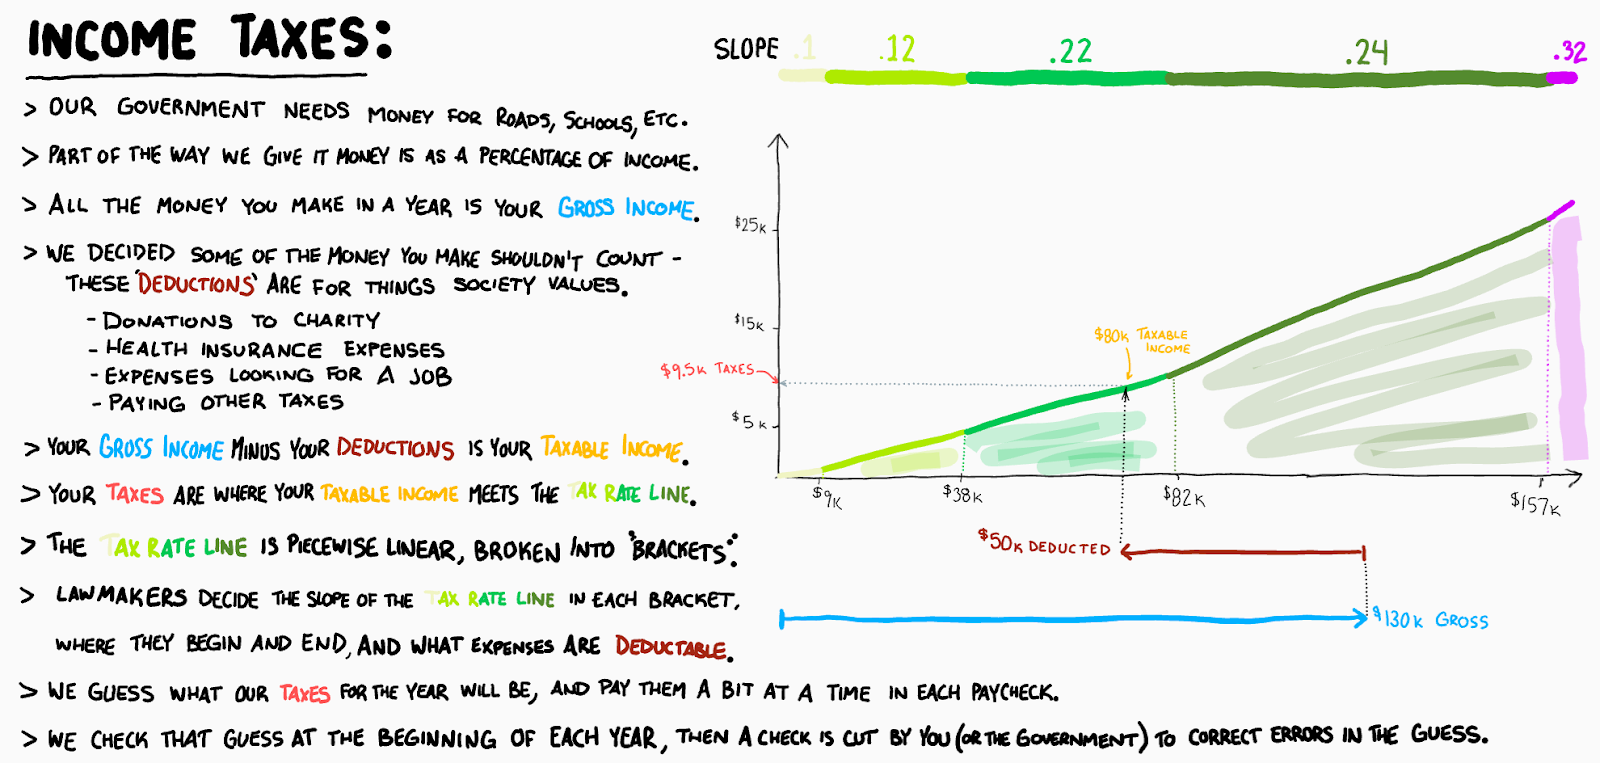 INCOME TAXES:
> OUR GOVERNMENT NEEDS MONEY FOR ROADS, SCHOOLS, ETC.
> PART OF THE WAY WE GIVE IT MONEY IS AS A PERCENTAGE OF INCOME.
> ALL THE MONEY YOU MAKE IN A YEAR IS YOUR GROSS INCOME.
> WE DECIDED SOME OF THE MONEY YOU MAKE SHOULDN'T COUNT -
THESE 'DEDUCTIONS' ARE FOR THINGS SOCIETY VALUES.
- DONATIONS TO CHARITY
- HEALTH INSURANCE EXPENSES
- EXPENSES LOOKING FOR A JOB
- PAYING OTHER TAXES
> YOUR GROSS INCOME MINUS YOUR DEDUCTIONS IS YOUR TAXABLE INCOME.
> YOUR TAXES ARE WHERE YOUR TAXABLE INCOME MEETS THE TAX RATE LINE.
> THE TAX RATE LINE IS PIECEWISE LINEAR, BROKEN INTO "BRACKETS".
> LAWMAKERS DECIDE THE SLOPE OF THE TAX RATE LINE IN EACH BRACKET,
WHERE THEY BEGIN AND END, AND WHAT EXPENSES ARE DEDUCTABLE.
> WE GUESS WHAT OUR TAXES FOR THE YEAR WILL BE, AND PAY THEM A BIT AT A TIME IN EACH PAYCHECK.
> WE CHECK THAT GUESS AT THE BEGINNING OF EACH YEAR, THEN A CHECK IS CUT BY YOU (OR THE GOVERNMENT) TO CORRECT ERRORS IN THE GUESS.
SLOPE .1 .12 .22 .24 .32
$25K
$15K
$5K
$9.5K TAXES
$80K TAXABLE
INCOME
$9K $38K $82K $157K
$50K DEDUCTED
$130K GROSS